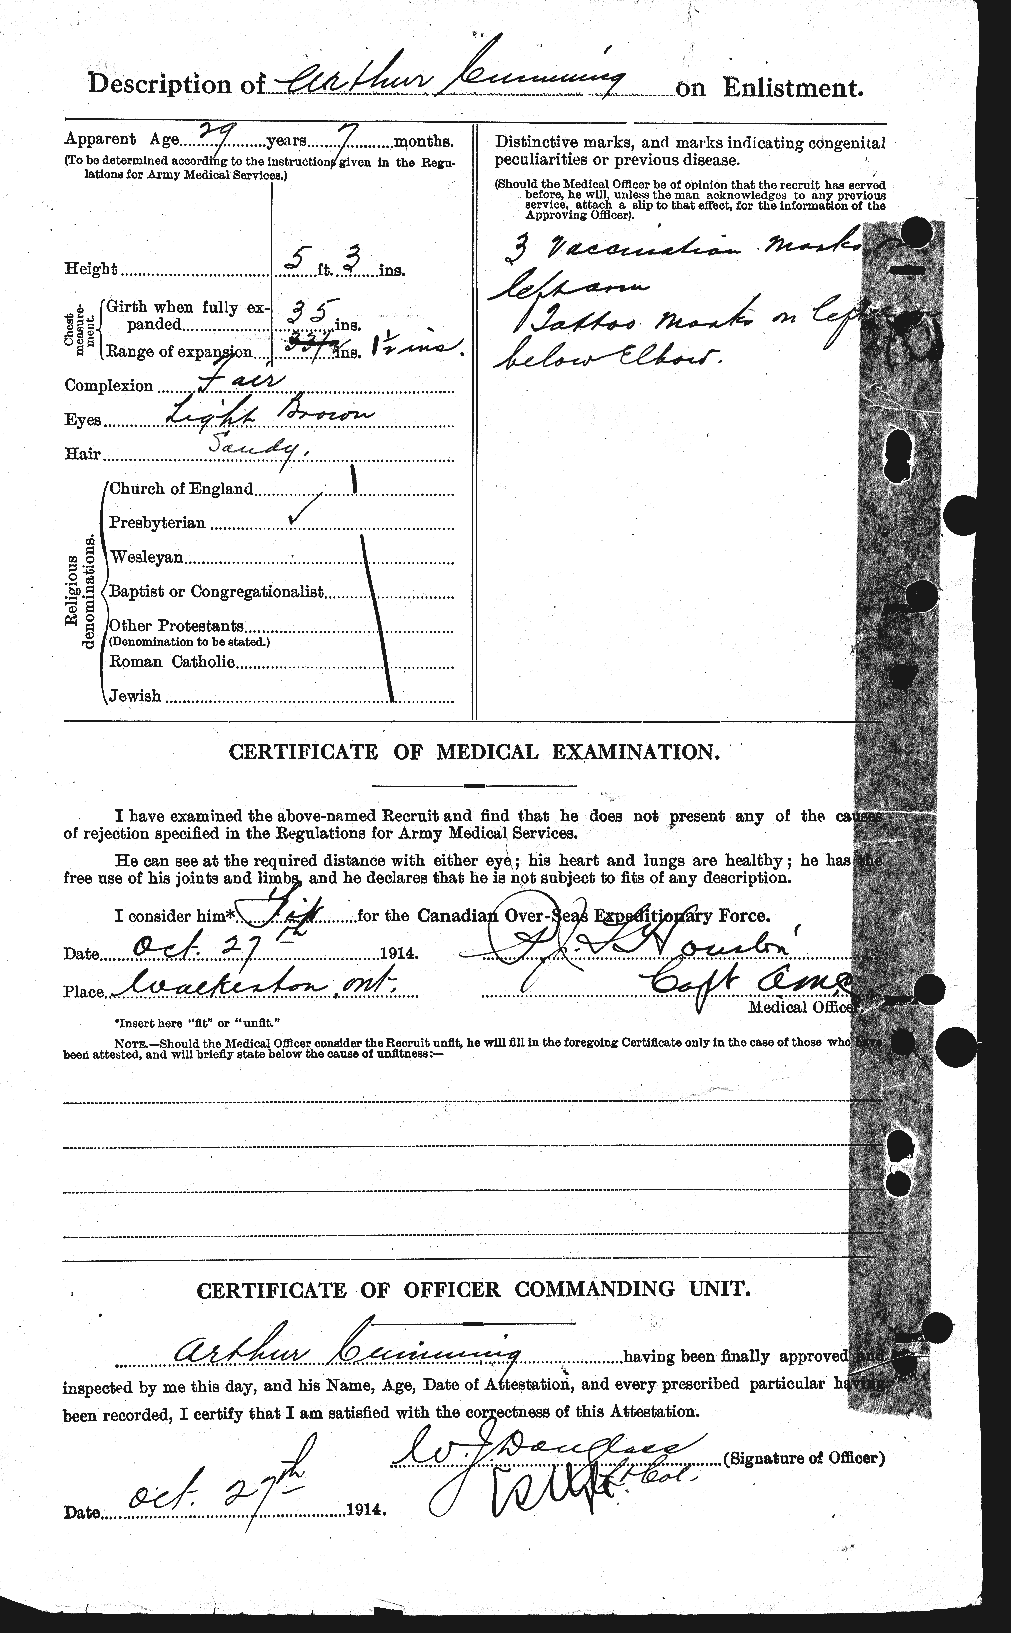 Description of Arthur Cumming on Enlistment.
Apparent Age 29 years 7 months.
(To be determined according to the instructions given in the Regu-
lations for Army Medical Services.)
Height 5 ft. 3 ins.
Chest measure-ment.
Girth when fully ex-
panded 35 ins.
Range of expansion 33½ ins. 1½ ins.
Complexion Fair
Eyes Light Brown
Hair Sandy.
Religious denominations.
Church of England
Presbyterian ✓
Wesleyan
Baptist or Congregationalist
Other Protestants
(Denomination to be stated.)
Roman Catholic
Jewish
Distinctive marks, and marks indicating congenital
peculiarities or previous disease.
(Should the Medical Officer be of opinion that the recruit has served
before, he will, unless the man acknowledges to any previous
service, attach a slip to that effect, for the information of the
Approving Officer).
3 Vaccination marks
left arm
Tattoo marks on left
below Elbow.
CERTIFICATE OF MEDICAL EXAMINATION.
I have examined the above-named Recruit and find that he does not present any of the causes
of rejection specified in the Regulations for Army Medical Services.
He can see at the required distance with either eye; his heart and lungs are healthy; he has the
free use of his joints and limbs, and he declares that he is not subject to fits of any description.
I consider him* Fit for the Canadian Over-Seas Expeditionary Force.
Date Oct. 27th 1914.
Houston
Place Walkerton, Ont.
Capt AMC
Medical Officer.
*Insert here "fit" or "unfit."
NOTE.—Should the Medical Officer consider the Recruit unfit, he will fill in the foregoing Certificate only in the case of those who have
been attested, and will briefly state below the cause of unfitness:—
CERTIFICATE OF OFFICER COMMANDING UNIT.
Arthur Cumming having been finally approved and
inspected by me this day, and his Name, Age, Date of Attestation, and every prescribed particular having
been recorded, I certify that I am satisfied with the correctness of this Attestation.
W J Douglass (Signature of Officer)
Lt Col.
Date Oct. 27th 1914.